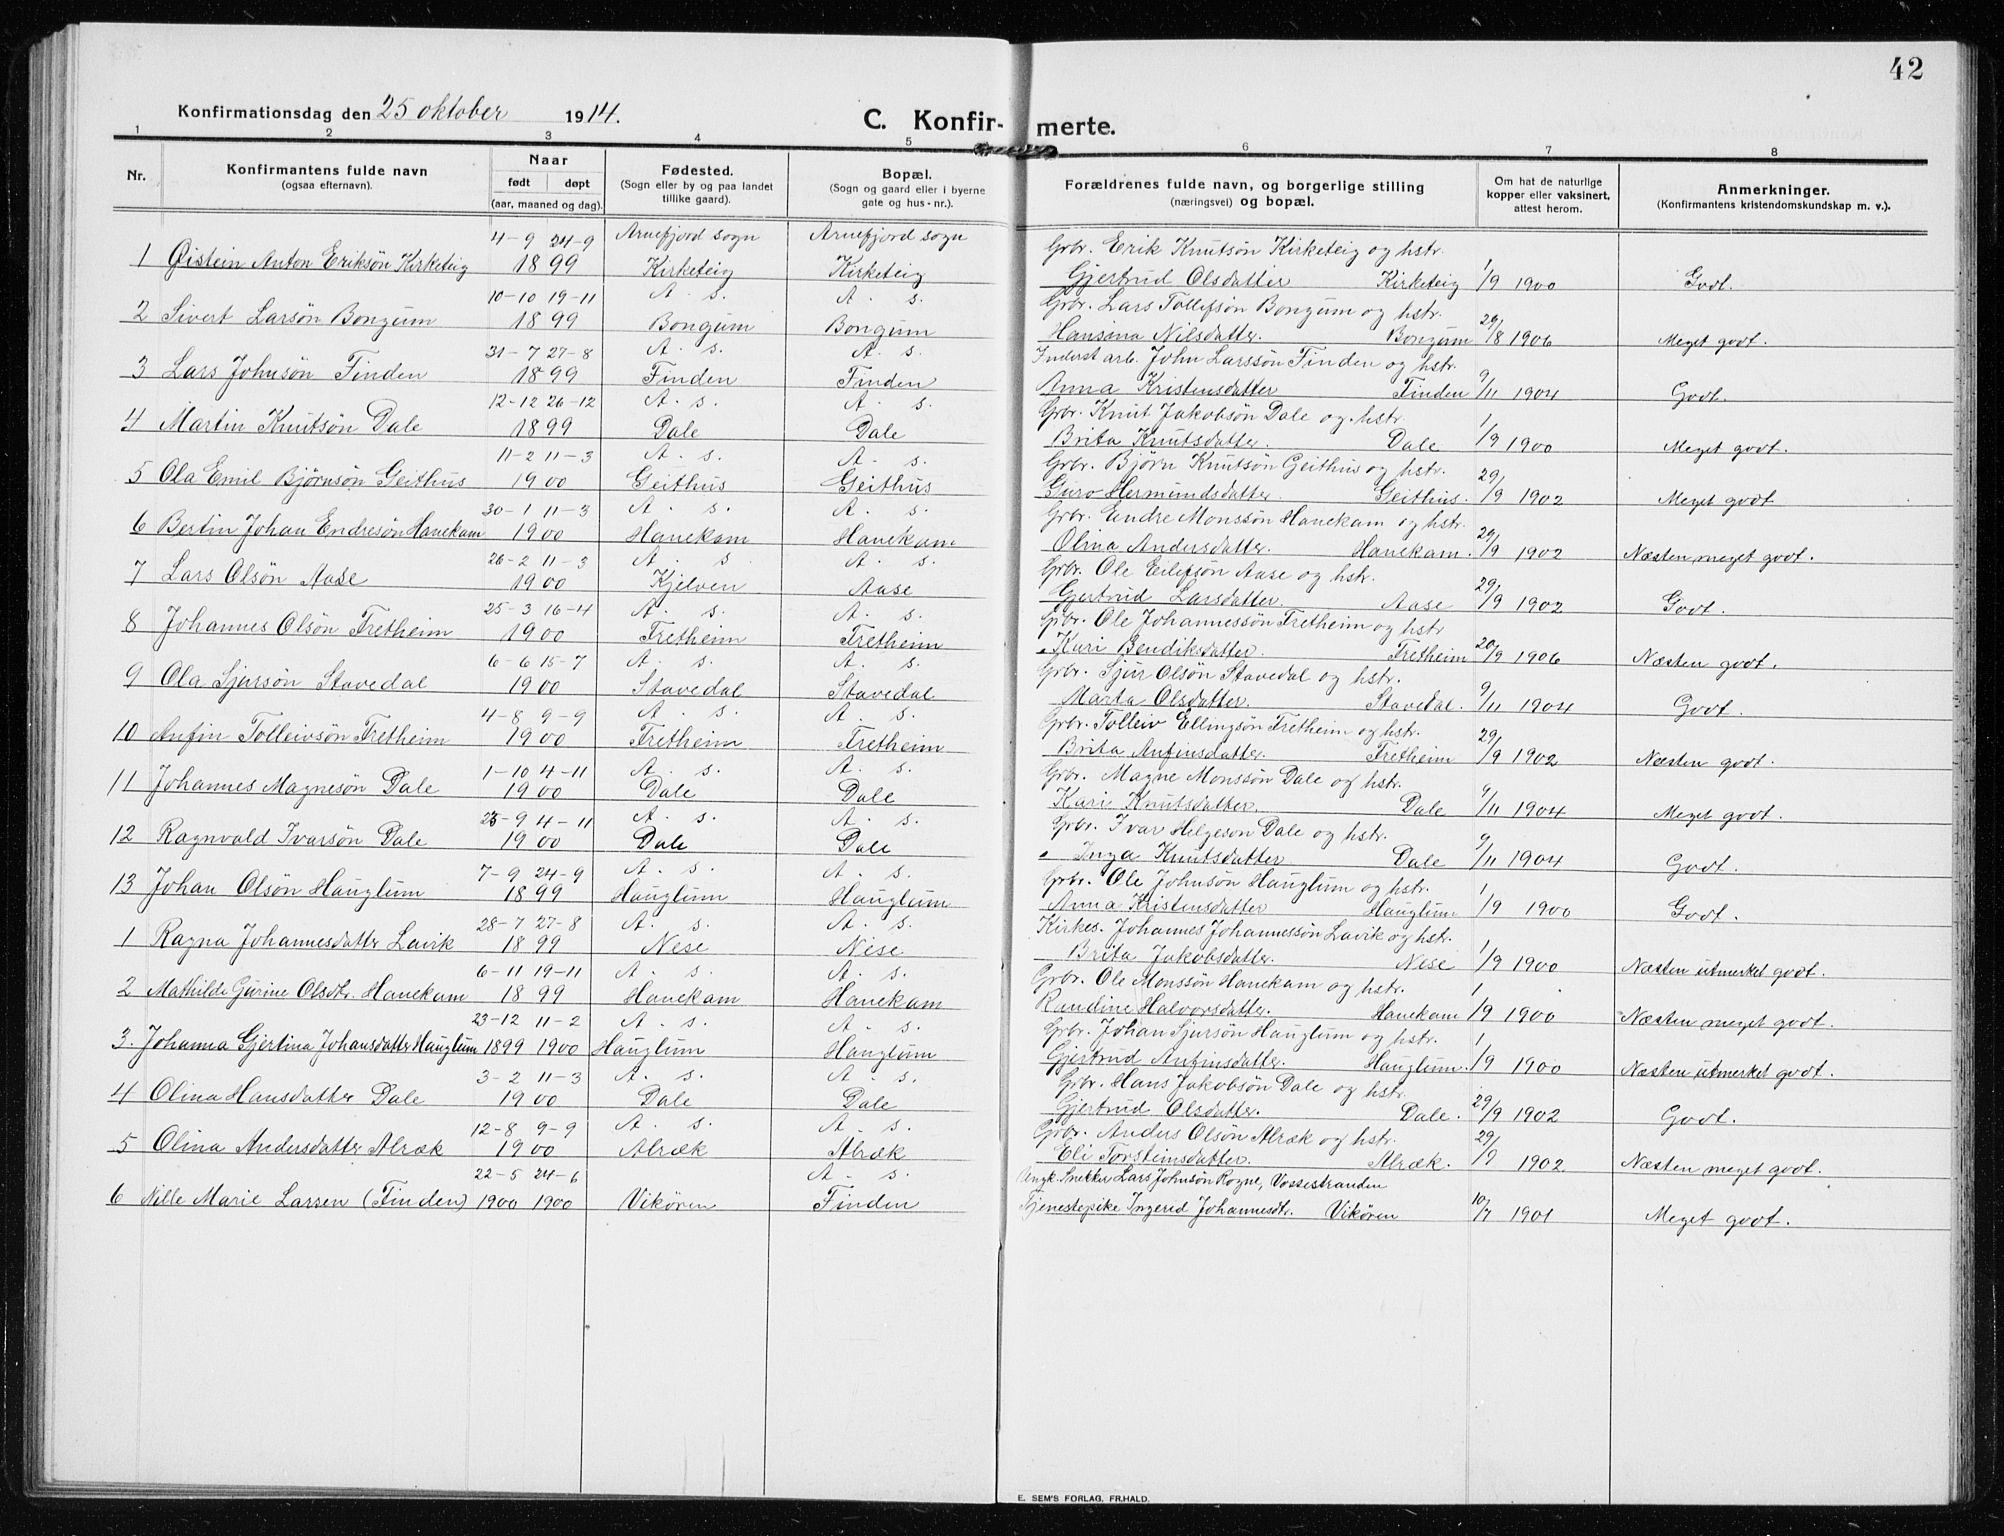 42
Konfirmationsdag den 25 oktober 1914.
C. Konfir- merte.
1 2 3 4 5 6 7 8
Nr.
Konfirmantens fulde navn
(ogsaa efternavn).
Naar
født døpt
(aar, maaned og dag).
Fødested.
(Sogn eller by og paa landet
tillike gaard).
Bopæl.
(Sogn og gaard eller i byerne
gate og hus-nr.).
Forældrenes fulde navn, og borgerlige stilling
(næringsvei) og bopæl.
Om hat de naturlige
kopper eller vaksinert,
attest herom.
Anmerkninger.
(Konfirmantens kristendomskundskap m. v.).
4-9 24-9 Arnefjord sogn Arnefjord sogn Grbr. Erik Knutsøn Kirketeig og hstr.
1 Øistein Anton Eriksøn Kirketeig 1899 Kirketeig Kirketeig Gjertrud Olsdatter Kirketeig 1/9 1900 Godt.
10-10 19-11 A. s. A. s. Grbr. Lars Tollefsøn Bongum og hstr.
2 Sivert Larsøn Bongum 1899 Bongum Bongum Hansina Nilsdatter. Bongum 29/8 1906 Meget godt.
31-7 27-8 A. s. A. s. Inderst arb. John Larssøn Finden og hstr.
3 Lars Johnsøn Finden 1899 Finden Finden Anna Kristensdatter Finden 9/11 1904 Godt.
12-12 26-12 A. s. A. s. Grbr. Knut Jakobsøn Dale og hstr.
4 Martin Knutsøn Dale 1899 Dale Dale Brita Knutsdatter. Dale 1/9 1900 Meget godt.
11-2 11-3 A. s. A. s. Grbr. Bjørn Knutsøn Geithus og hstr.
5 Ola Emil Bjørnsøn Geithus 1900 Geithus Geithus Guro Hermundsdatter. Geithus. 29/9 1902 Meget godt
30-1 11-3 A. s. A. s. Grbr. Endre Monssøn Hanekam og hstr.
6 Bertin Johan Endresøn Hanekam 1900 Hanekam Hanekam Olina Andersdatter. Hanekam. 29/9 1902 Næsten meget godt.
26-2 11-3 A. s A. s. Grbr. Ole Eilefsøn Aase og hstr.
7 Lars Olsøn Aase 1900 Kjelven Aase Gjertrud Larsdatter. Aase 29/9 1902 Godt.
25-3 16-4 A. s. A. s. Grbr. Ole Johannessøn Fretheim og hstr
8 Johannes Olsøn Fretheim 1900 Fretheim Fretheim Kari Bendiksdatter. Fretheim 20/9 1906 Næsten godt.
6-6 15-7 A. s. A. s. Grbr. Sjur Olsøn Stavedal og hstr.
9 Ola Sjursøn Stavedal 1900 Stavedal Stavedal Marta Olsdatter. Stavedal. 9/11 1904 Godt.
4-8 9-9 A. s. A. s. Grbr. Tolleiv Ellingsøn Fretheim og hstr.
10 Anfin Tolleivsøn Fretheim 1900 Fretheim Fretheim Brita Anfinsdatter. Fretheim 29/9 1902 Næsten godt.
1-10 4-11 A. s. A. s. Grbr. Magne Monssøn Dale og hstr.
11 Johannes Magnesøn Dale 1900 Dale Dale Kari Knutsdatter Dale 9/11 1904 Meget godt.
4-11 A. s. A. s. Grbr. Ivar Helgesøn Dale og hstr.
12 Ragnvald Ivarsøn Dale 1900 Dale Dale Inga Knutsdatter Dale 9/11 1904 Godt.
7-9 24-9 A. s. A. s. Grbr. Ole Johnsøn Hauglum og hstr.
13 Johan Olsøn Hauglum 1899 Hauglum Hauglum Anna Kristensdatter Hauglum 1/9 1900 Godt.
28-7 27-8 A. s. A. s. Kirkes. Johannes Johannessøn Lavik og hstr.
1 Ragna Johannesdatter Lavik 1899 Nese Nese Brita Jakobsdatter. Nese 1/9 1900 Næsten utmerket godt.
6-11 19-11 A. s. A. s. Grbr. Ole Monssøn Hanekam og hstr.
2 Mathilde Gurine Olsdtr. Hanekam 1899 Hanekam Hanekam Randine Halvorsdatter. Hanekam 1/9 1900 Næsten meget godt.
23-12 11-2 A. s. A. s. Grbr. Johan Sjursøn Hauglum og hstr.
3. Johanna Gjertina Johansdatter Hauglum 1899 1900 Hauglum Hauglum Gjertrud Anfinsdatter. Hauglum. 1/9 1900 Næsten utmerket godt.
3-2 11-3 A. s. A. s. Grbr. Hans Jakobsøn Dale og hstr.
4 Olina Hansdatter Dale 1900 Dale Dale Gjertrud Olsdatter. Dale. 29/9 1902 Godt.
12-8 9-9 A. s. A. s. Grbr. Anders Olsøn Alræk og hstr.
5 Olina Andersdatter Alræk 1900 Alræk Alræk Eli Torsteinsdatter. Alræk. 29/9 1902 Næsten meget godt.
22-5 24-6 A. s. Ungk. Snekker Lars Johnsøn Rogne, Vossestranden
6 Nille Marie Larsen (Finden) 1900 1900 Vikören Finden Tjenestepike Ingerid Johannesdtr. Vikören 10/7 1901 Meget godt.
E. SEM'S FORLAG, FR.HALD.